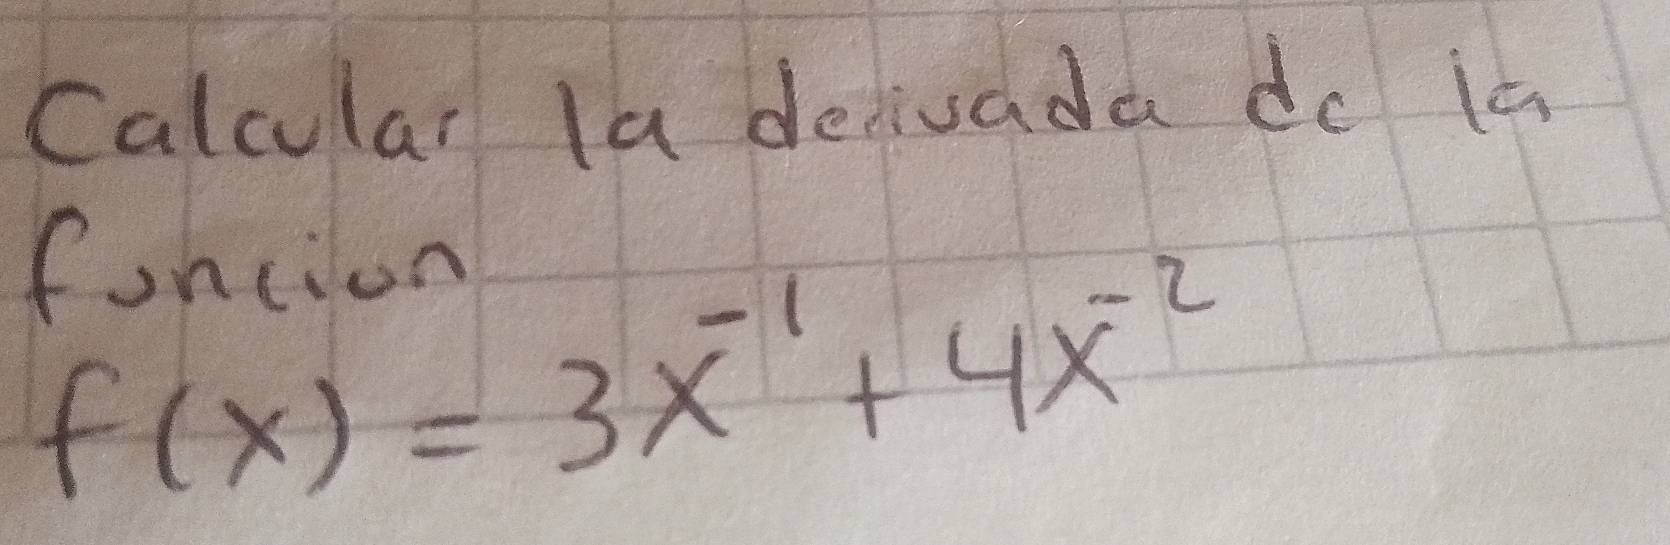 Calcular la derivada de la
funcion
f(x) = 3x⁻¹ + 4x⁻²